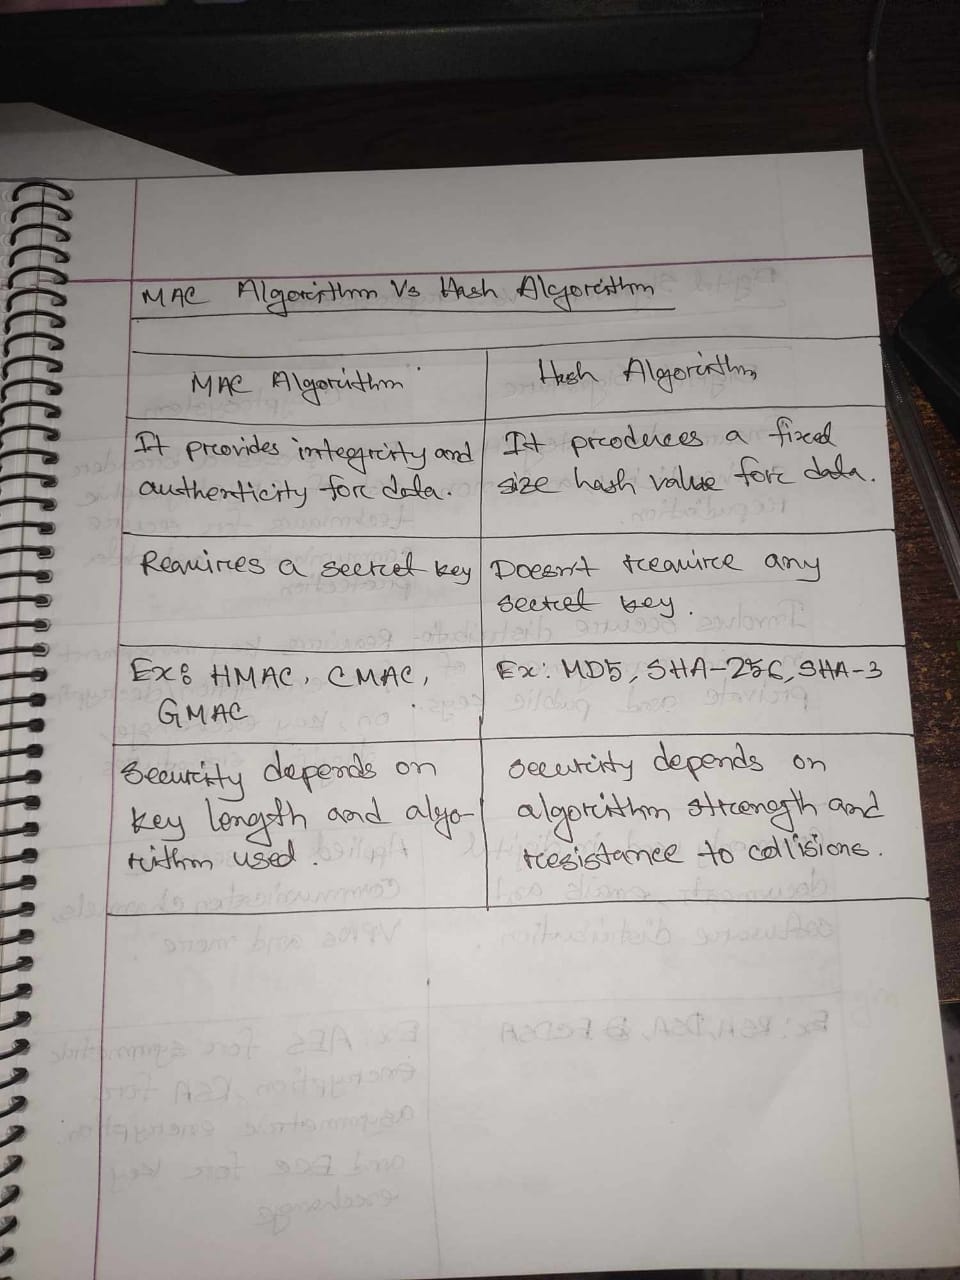 MAC Algorithm Vs Hash Algorithm
MAC Algorithm
Hash Algorithm
It provides integrity and
authenticity for data.
It produces a fixed
size hash value for data.
Requires a secret key
Doesn't require any
secret key.
Ex: HMAC, CMAC,
GMAC
Ex: MD5, SHA-256, SHA-3
Security depends on
key length and algo-
rithm used.
Security depends on
algorithm strength and
resistance to collisions.